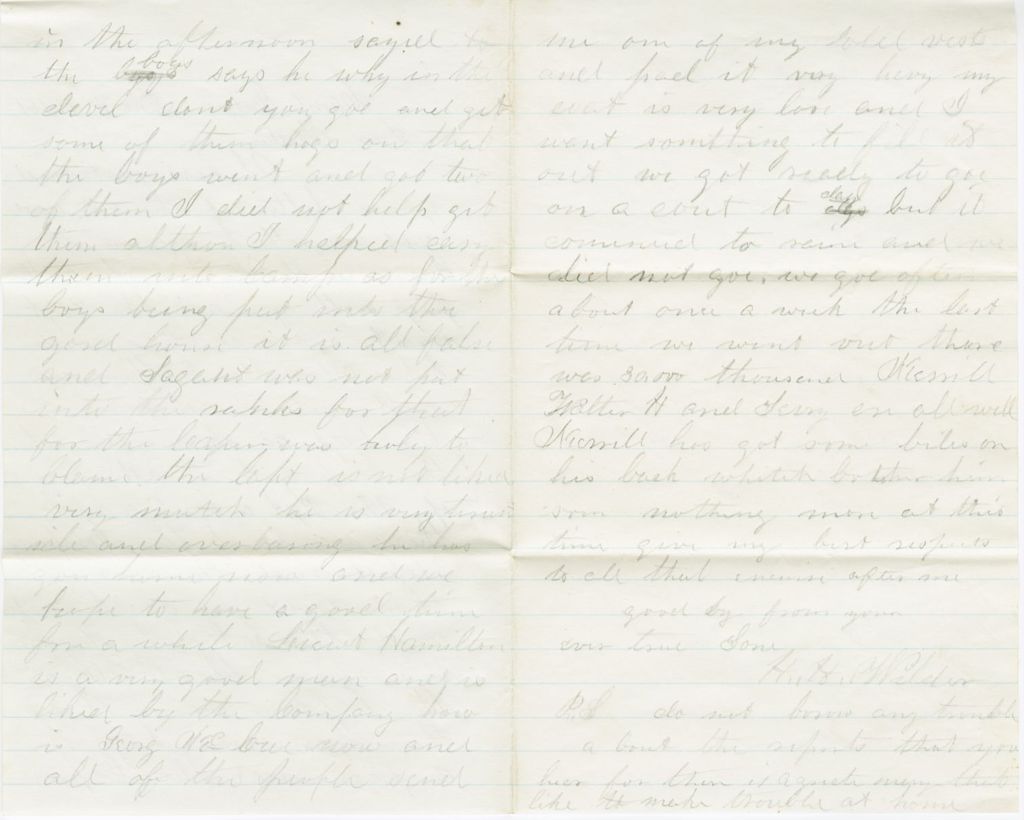 in the afternoon sayed to
the boys says he why in the
devel dont you goe and git
some of them hogs on that
the boys went and got two
of them I did not help git
them althou I helped cary
them into camp as for the
boys being put into the
gard house it is all false
and Sagent was not put
into the ranks for that
for the captin was only to
blame the left is not liked
very mutch he is very
and overbaring he has
gon home now and we
hope to have a good time
for a while Leiewt Hamilton
is a very good man and is
liked by the company how
is Georg now and
all of the people send
me one of my vests
and pad it very hevy my
coat is very lose and I
want somthing to fill it
out we got ready to goe
on a scout to day but it
comenced to rain and we
did not goe. we goe often
about once a week the last
time we went out thare
was 30,000 thousend Merrill
Walter H and Jerry are all well
Merrill has got some biles on
his back whitch bother him
som nothing more at this
time give my best respects
to all that inquire after me
good by from your
ever true Sone
H. H. Wilder
P.S do not borow any trouble
a bout the reports that you
hear for thare is a great meny that
like to make trouble at home